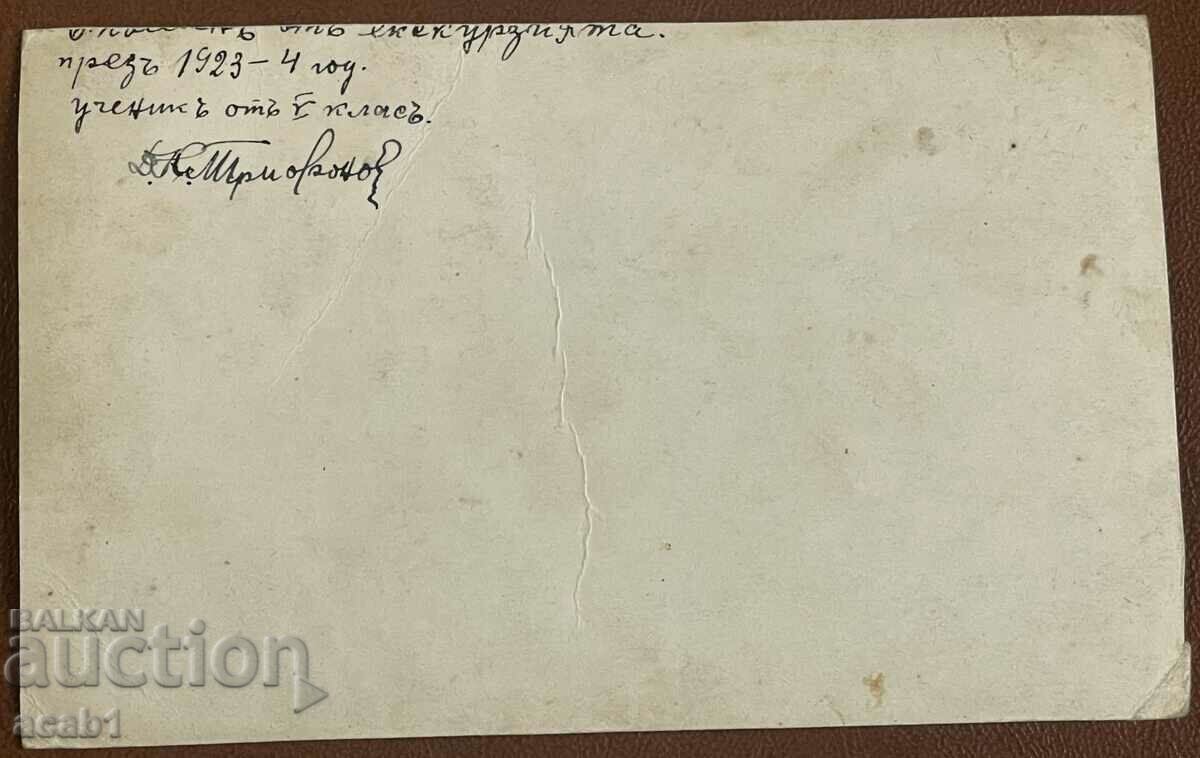 Споменъ отъ екскурзията.
презъ 1923-4 год.
ученикъ отъ V класъ.
Д. К. Трифонов
BALKAN
auction
acab1